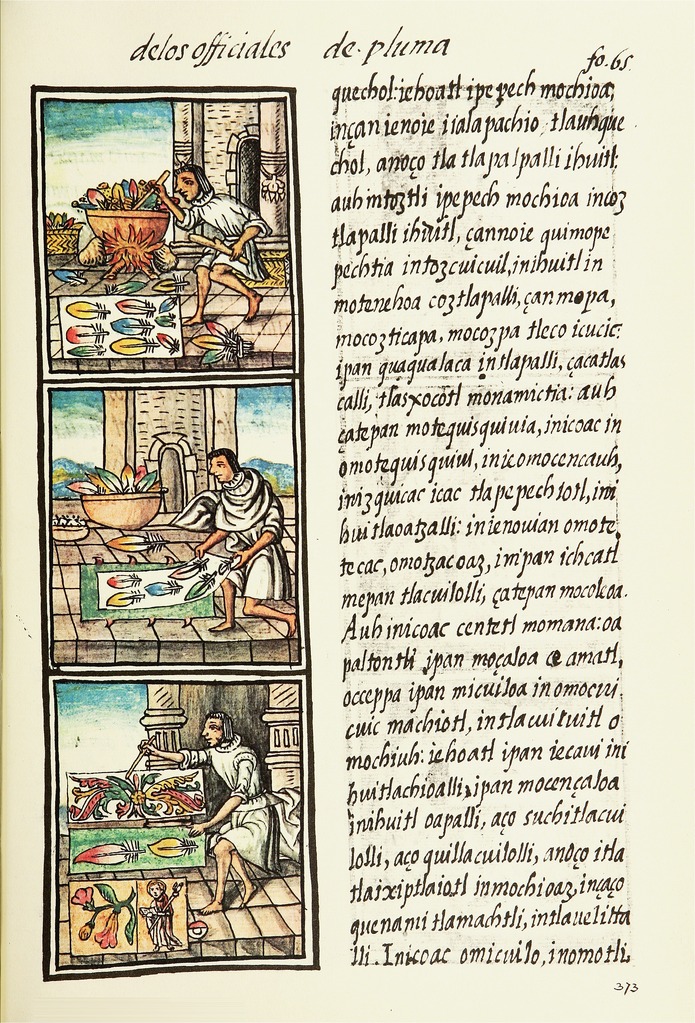 delos officiales de pluma
fo. 65
quechol: iehoatl ipepech mochioa,
inçan ienoie iialapachio tlauhque
chol, anoço tlatlapalpalli ihuitl:
auh in toztli ipepech mochioa in coz
tlapalli ihuitl, çannoie quimope
pechtia in tozcuicuil, inihuitl in
motenehoa coztlapalli, çan mopa,
mocozticapa, mocozpa tleco icucic:
ipan quaqualaca in tlapalli, çacatlas
calli, tlasxocotl monamictia: auh
çatepan motequisquiuia, inicoac in
omotequisquiui, inic omocencauh,
in izquicac icac tlapepechiotl, ini
huitlaoatzalli: in ienouian omote
tecac, omotzacoaz, inipan ichcatl
mepan tlacuilolli, çatepan mocolcoa.
Auh inicoac centetl momana: oa
paltontli ipan moçaloa ce amatl,
occeppa ipan micuiloa in omocuи
cuic machiotl, in tlacuiluitl o
mochiuh: iehoatl ipan iecaui ini
huitlachioalli, ipan mocencaloa
inihuitl oapalli, aço suchitlacui
lolli, aço quillacuilolli, anoço itla
tlaixiptlaiotl in mochioaz, inçaço
quenami tlamachtli, intlauelitta
lli. Inicoac omicuilo, inomotli,
373